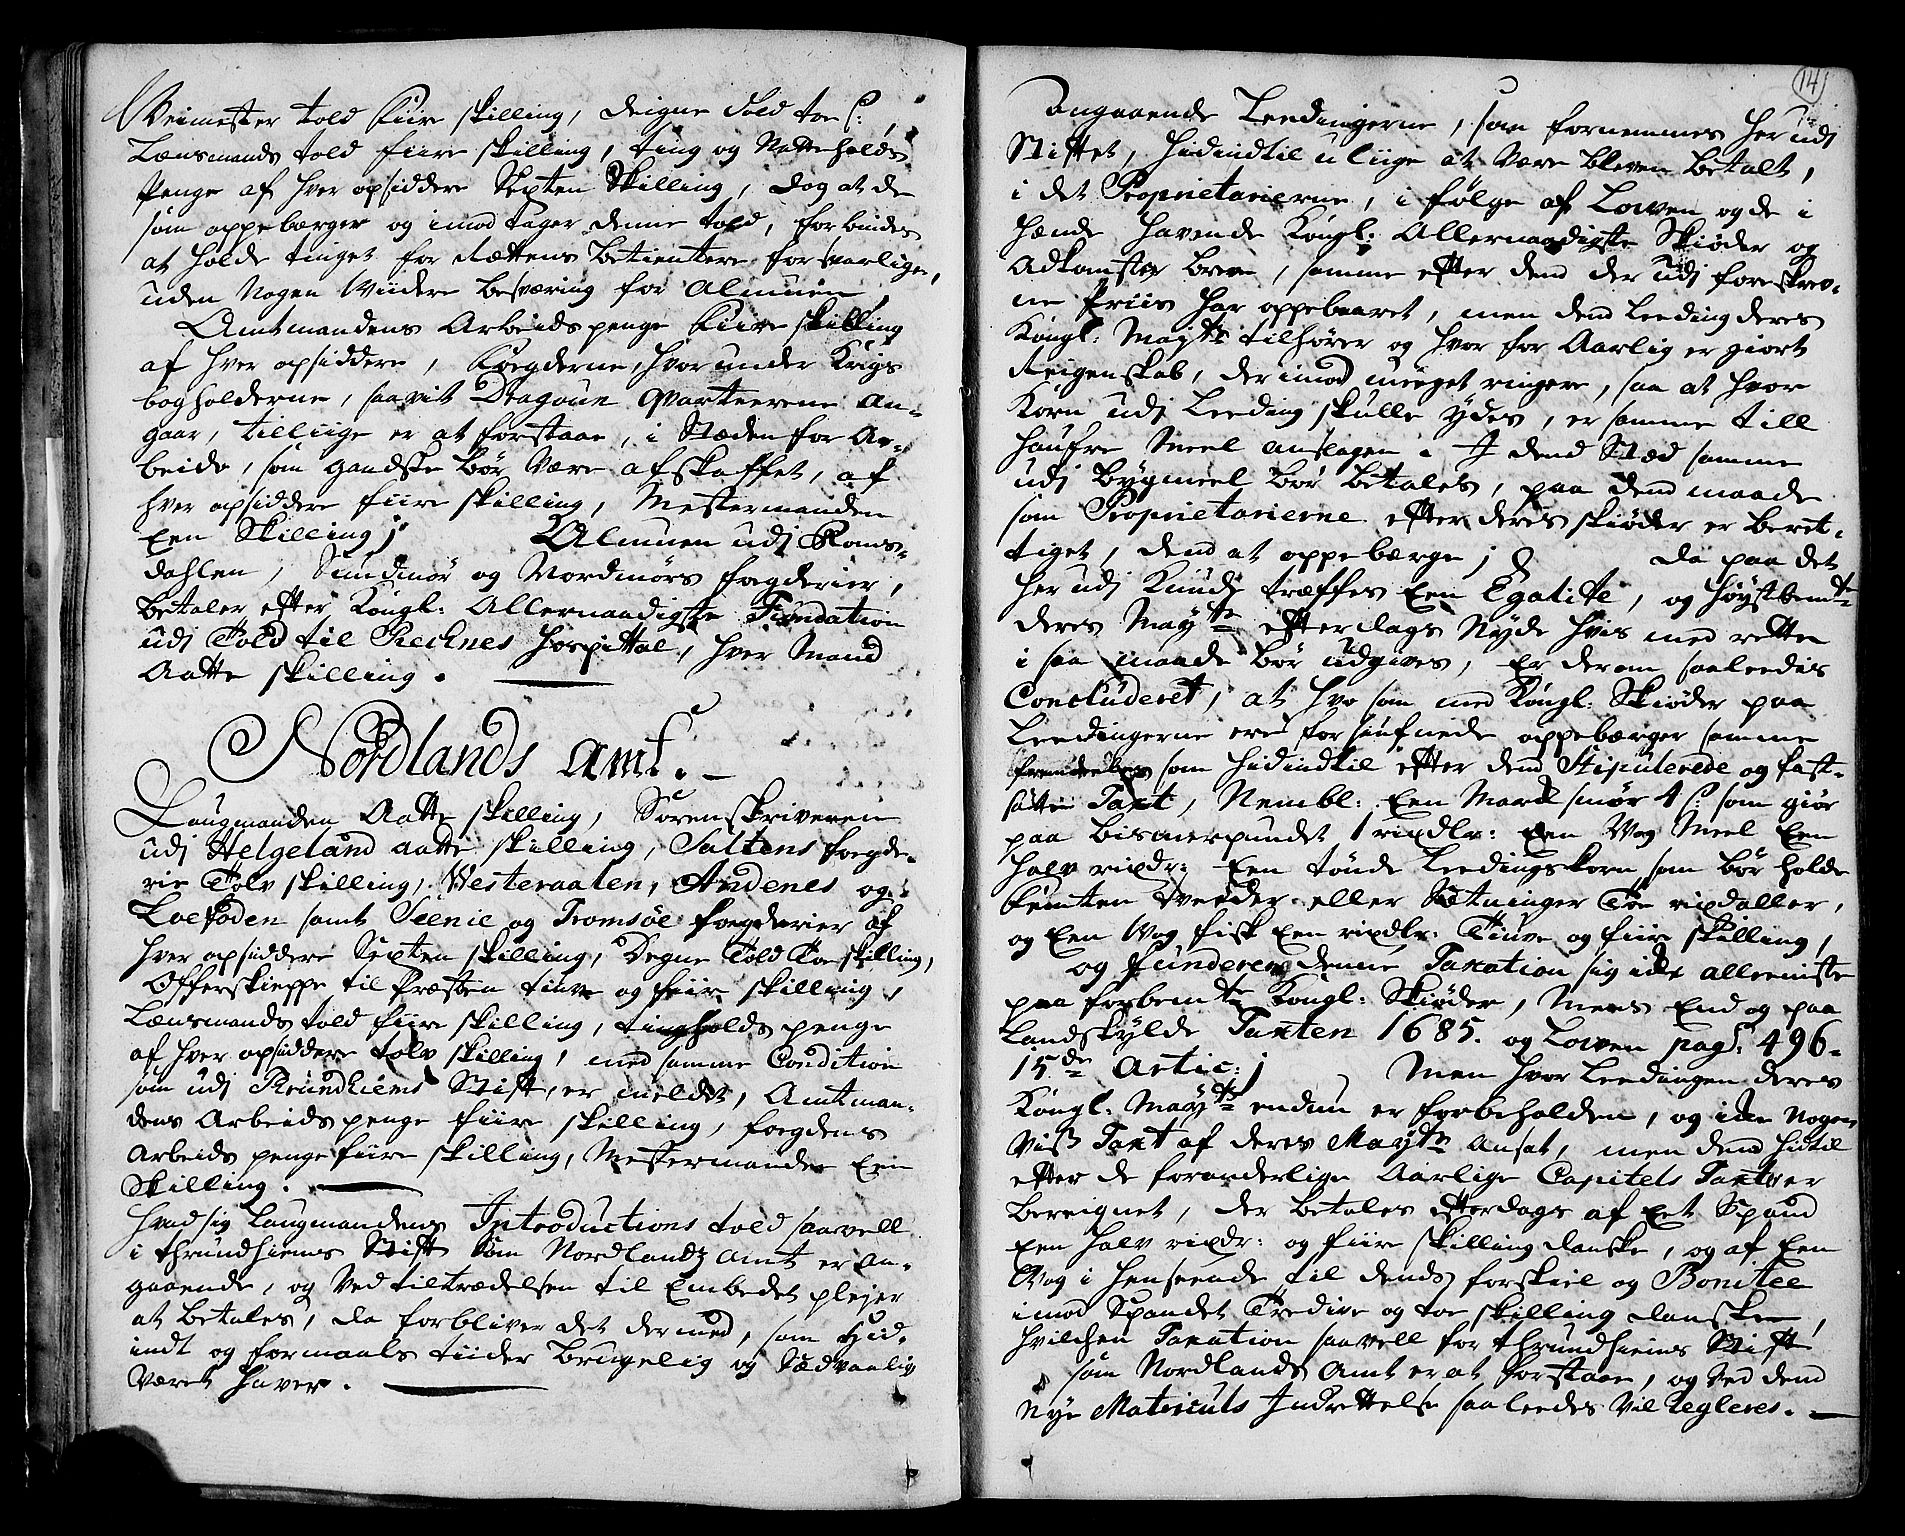 Veimester told fiire skilling, deigne told toe s:,
Lænsmands told fiire skilling, ting og Natteholds
Penge af hver opsiddere Sexten Skilling, dog at de
som oppebærger og imod tager denne told, forbindes
at holde tinget for Rættens betientere forsvarlige,
uden Nogen Viidere besværing for Almuen,
Amtmandens Arbeids penge fiire skilling
af hver opsiddere, foegderne, hvor under Krigs
bogholderne, saavit Dragoun Qvarteererne an-
gaar, tilliige er at forstaae, i Stæden for Ar-
beide, som gandske bør være afskaffet, af
hver opsiddere fiire skilling, Mestermanden
Een Skilling;  Almuen udj Roms-
dahlen, Sundmør og Nordmørs foegderier,
betaler efter Kongl: Allernaadigste Fundation
udj Told til Recknes Hospittal, hver Mand
Aatte skilling.
Nordlands Amt.
Laugmanden Aatte skilling, Sorenskriveren
udj Helgeland aatte skilling, Saltens foegde-
rie Tolv skilling, Westeraalen, Andenes og
Loefoden samt Sienie og Tromsøe foegderier af
hver opsiddere Sexten skilling, Degne Told Toe skilling,
Offerskieppe til Præsten tiuve og fiir skilling,
Lænsmands told fiire skilling, tingholds penge
af hver opsiddere tolv skilling, med samme Condition
som udj Trundhiems Stift, er meldet, Amtman-
dens Arbeids penge fiire skilling, foegdens
Arbeids penge fiire skilling, Mestermanden Een
Skilling.
Hvad sig Laugmandens Introductions told saavell
i Thrundhiems Stift som Nordlandz Amt er An-
gaaende, og Ved tiltrædelsen til Embedet plejer
at betales, da forbliver det dermed, som hid-
indt og formaals tiider brugelig og Sædvaanlig
været haver.
14
Angaaende Leedingerne, som fornemmes her udj
Stiftet, hidindtil uliige at være bleven betalt,
i det Proprietarierne, i følge af Lowen og de i
hænde havende Kongl: Allernaadigste Skiøder og
Adkomster breve, samme efter dend der udj foreskrev-
ne Priis har oppebaaret, men dend Leeding deres
Kongl: Maytt tilhører og hvor for Aarlig er giort
Reigenskab, derimod meeget ringere, saa at hvor
Korn udj Leeding skulle ydes, er samme till
haufre Meel anslagen i dend Stæd samme
udj bygmeel bør betales, paa dend maade
som Proprietarierne efter deres skiøder er beret-
tiget, dend at oppebærge;  Da paa det
her udj kunde træffes Een Egalite, og høystbemte
deres Maytt efterdags Nyde hvis med retten
i saa maade bør udgives, Er derom saaleedis
Concluderet, at hvo som med Kongl: Skiøder paa
Leedingerne ere forsiufnede oppebærger samme
fremdeeles som hidindtil efter dend Stipulerede og fast-
satte Taxt, Nembl: Een Mark smør 4 s: som giør
paa bismerpundet 1 rixdlr: Een Vog Meel Een
halv rixdr: Een tønde Leedings korn som bør holde
femten Sveeder eller Sætninger Toe rixdaller,
og Een Vog fisk Een rixdlr: Tiuve og fiire skilling,
og funderer denne Taxation sig ikke alleeniste
paa forbemte Kongl: Skiøder, Mens End og paa
Landskylds Taxten 1685. og Lowen pag: 496.
15de Artic:;  Men hvor Leedingen deres
Kongl: Maytt endnu er forbeholden, og ikke Nogen
Viss Taxt af deres Maytt Ansat, men dend hidtil
efter de foranderlige Aarlige Capitels Taxter
Bereignet, der betales efterdags af Eet Spand
Een halv rixdr: og fiire skilling danske, og af Een
Vog i henseende til dends forskiel og Bonitee
imod Spandet Tredive og toe skilling danske,
hvilchen Taxation saavell for Thrundhiems Stift
som Nordlands Amt er at forstaae, og Ved dend
Nye Matriculs Indrettelse saaleedes Vil Regleres.